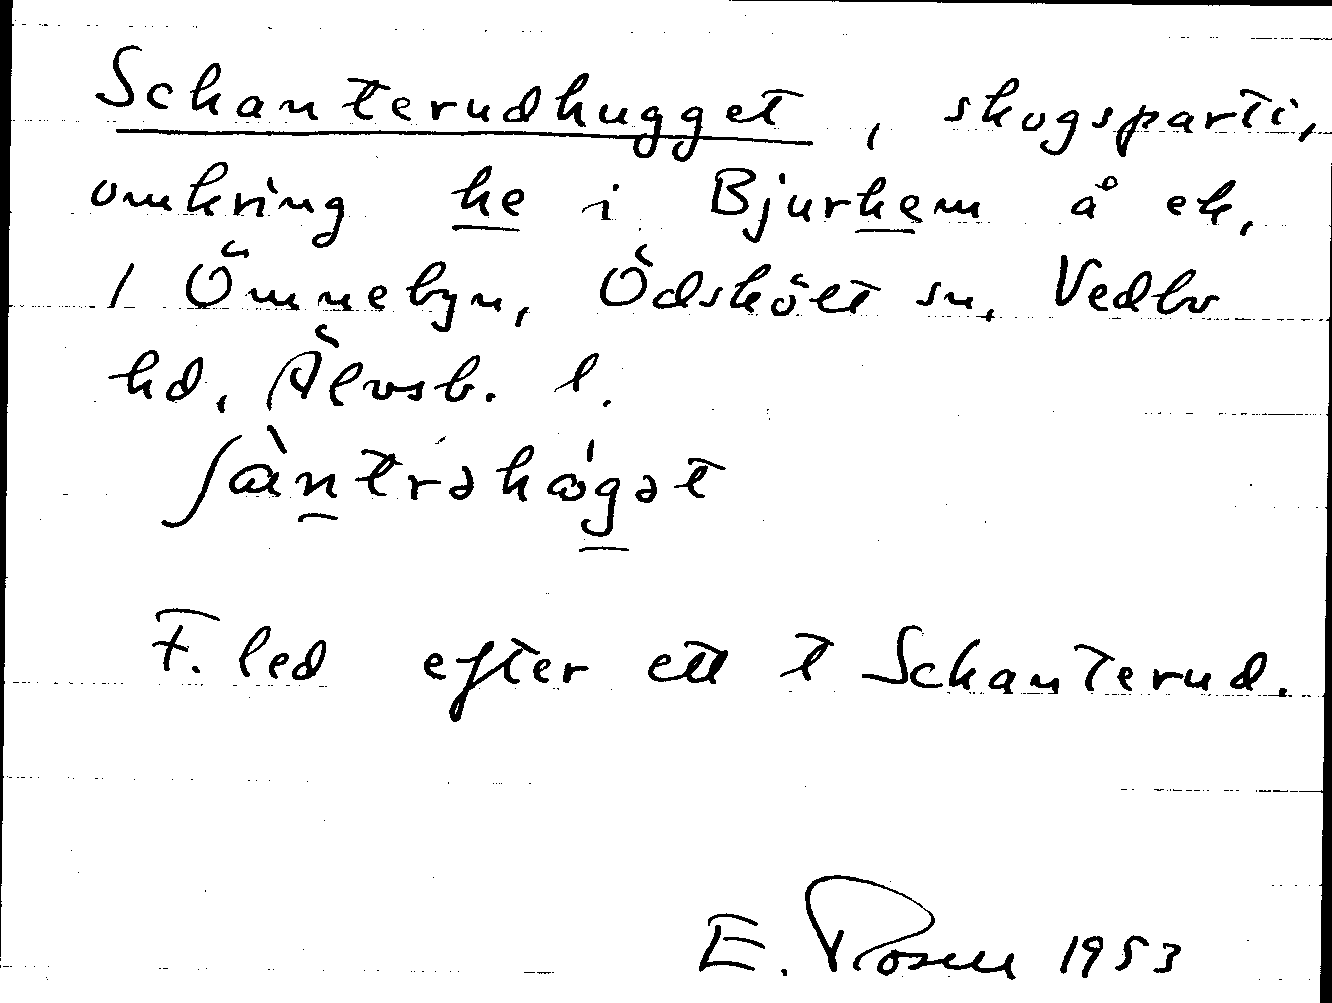 Schanterudhugget, skogsparti,
omkring he i Bjurhem å ek.
1 Ömnebyn, Ödskölt sn, Vedbo
hd, Älvsb. l.
ʃàntrəhágət
F. led efter ett t Schanterud.
E. Rosell 1953